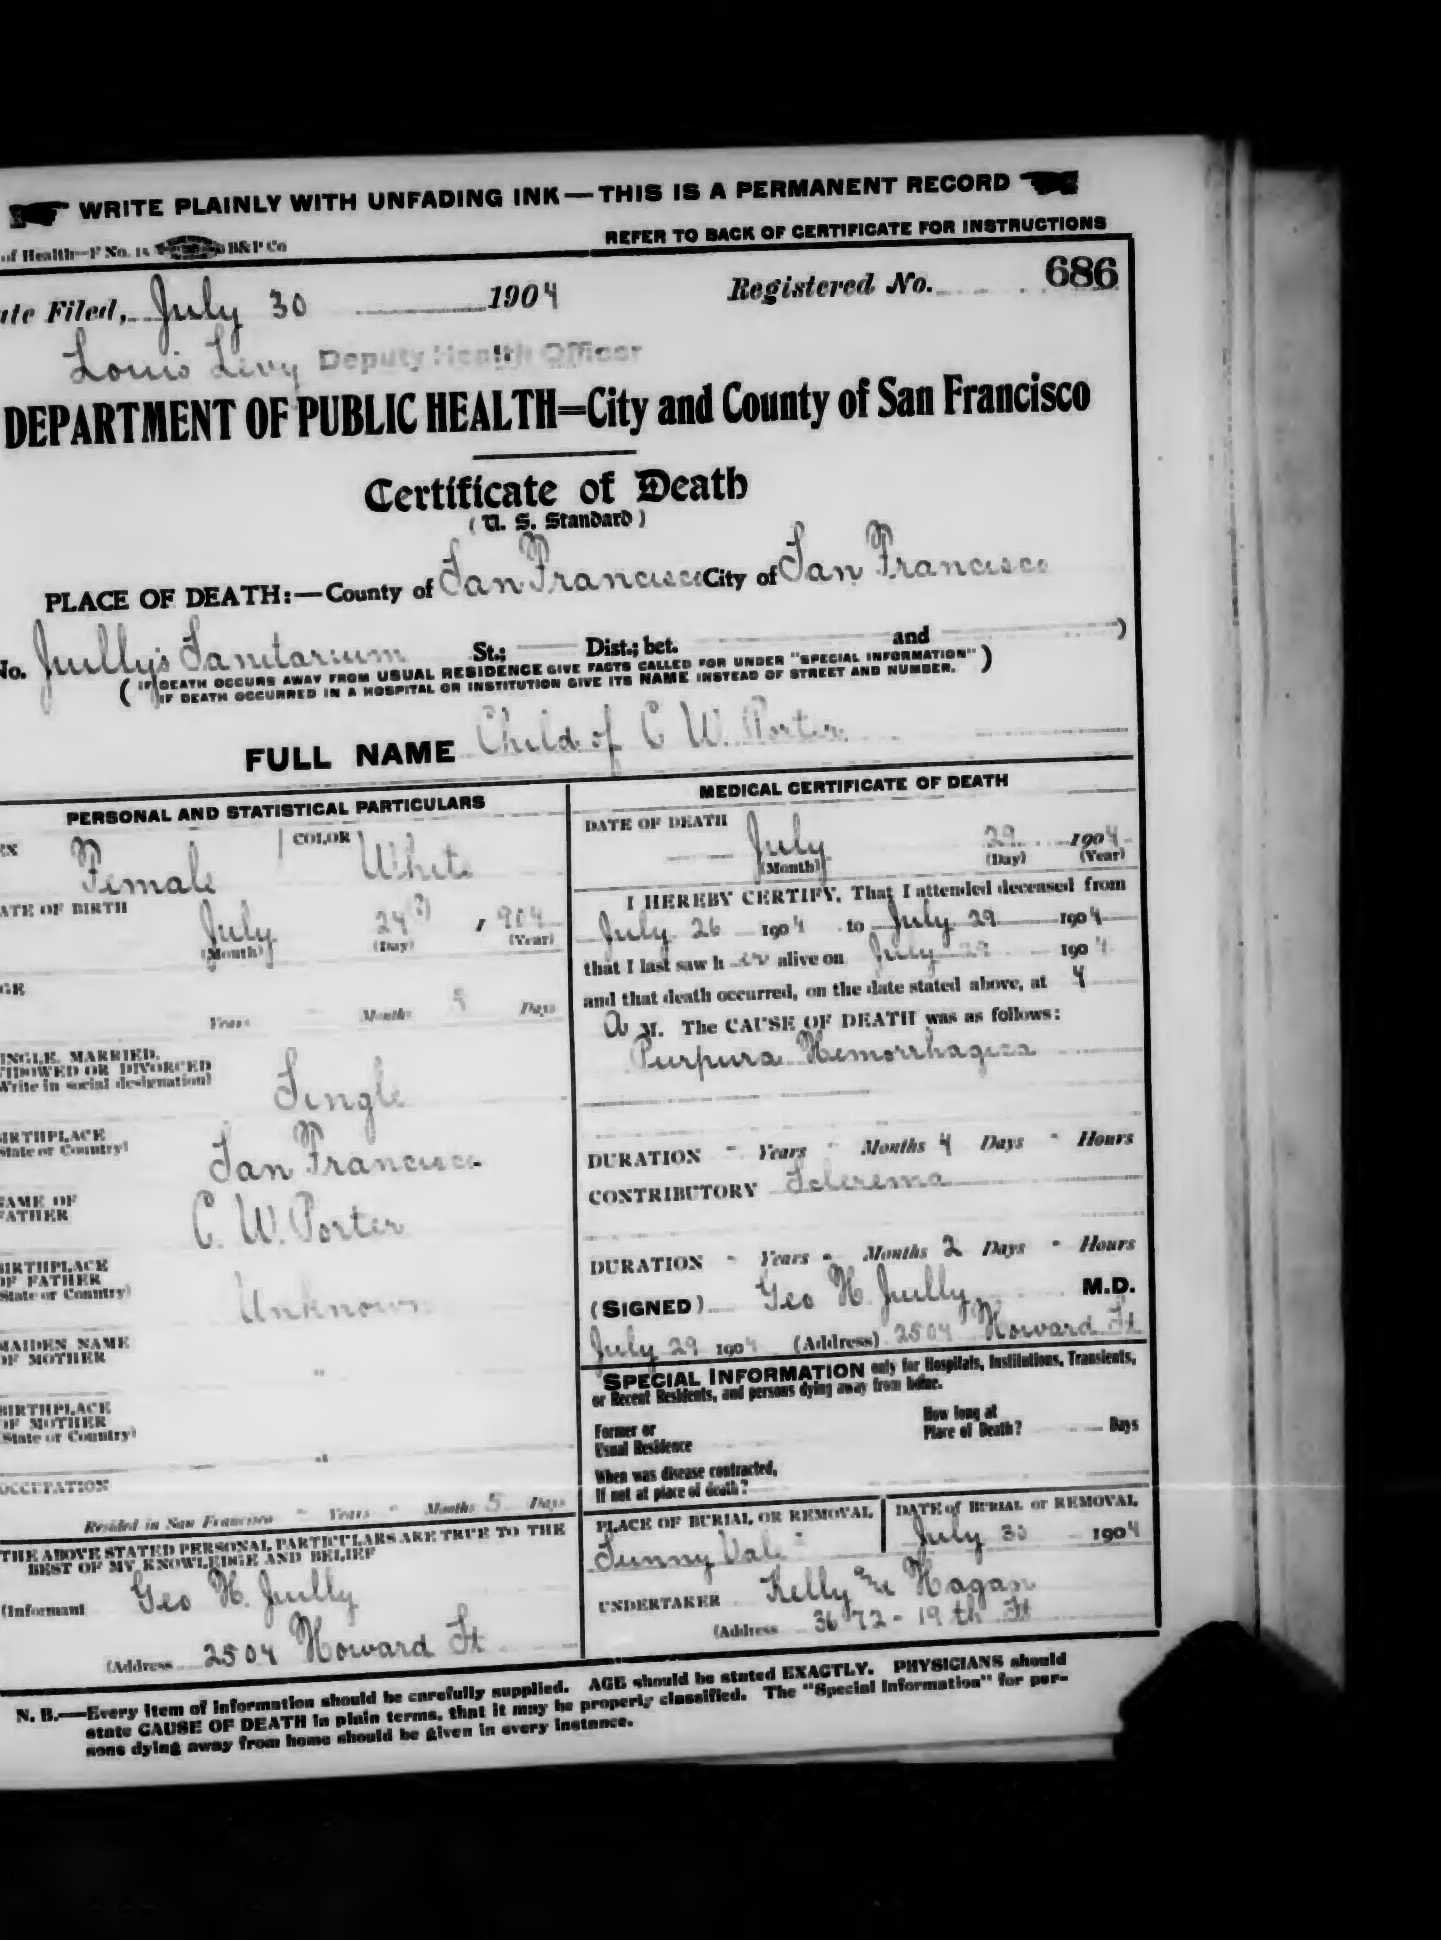 WRITE PLAINLY WITH UNFADING INK — THIS IS A PERMANENT RECORD
of Health—F No. 15 B&P Co
REFER TO BACK OF CERTIFICATE FOR INSTRUCTIONS
ate Filed, July 30 1904 Registered No. 686
Louis Levy Deputy Health Officer
DEPARTMENT OF PUBLIC HEALTH=City and County of San Francisco
Certificate of Death
(U. S. Standard)
PLACE OF DEATH:—County of San Francisco City of San Francisco
No. Jully's Sanitarium St.; Dist.; bet. and )
( IF DEATH OCCURS AWAY FROM USUAL RESIDENCE GIVE FACTS CALLED FOR UNDER "SPECIAL INFORMATION" )
IF DEATH OCCURRED IN A HOSPITAL OR INSTITUTION GIVE ITS NAME INSTEAD OF STREET AND NUMBER.
FULL NAME Child of C W. Porter
PERSONAL AND STATISTICAL PARTICULARS
EX Female COLOR White
ATE OF BIRTH
July 24(?) , 904
(Month) (Day) (Year)
GE
Years Months 5 Days
INGLE, MARRIED,
IDOWED OR DIVORCED
Write in social designation)
Single
IRTHPLACE
State or Country)
San Francisco
AME OF
FATHER
C. W. Porter
BIRTHPLACE
OF FATHER
State or Country)
Unknown
MAIDEN NAME
OF MOTHER
"
BIRTHPLACE
OF MOTHER
State or Country)
"
OCCUPATION
Resided in San Francisco - Years - Months 5 Days
THE ABOVE STATED PERSONAL PARTICULARS ARE TRUE TO THE
BEST OF MY KNOWLEDGE AND BELIEF
(Informant Geo H. Jully
(Address 2504 Howard St
MEDICAL CERTIFICATE OF DEATH
DATE OF DEATH
July 29 1904
(Month) (Day) (Year)
I HEREBY CERTIFY, That I attended deceased from
July 26 1904 to July 29 1904
that I last saw h er alive on July 29 1904
and that death occurred, on the date stated above, at 4
A M. The CAUSE OF DEATH was as follows:
Purpura Hemorrhagica
DURATION - Years - Months 4 Days - Hours
CONTRIBUTORY Sclerema
DURATION - Years - Months 2 Days - Hours
(SIGNED) Geo H. Jully M.D.
July 29 1904 (Address) 2504 Howard St
SPECIAL INFORMATION only for Hospitals, Institutions, Transients,
or Recent Residents, and persons dying away from home.
Former or
Usual Residence
How long at
Place of Death? Days
When was disease contracted,
If not at place of death?
PLACE OF BURIAL OR REMOVAL
Sunny Vale
DATE of BURIAL or REMOVAL
July 30 1904
UNDERTAKER Kelly and Hagan
(Address 3672 - 19th St
N. B.—Every item of information should be carefully supplied. AGE should be stated EXACTLY. PHYSICIANS should
state CAUSE OF DEATH in plain terms, that it may be properly classified. The "Special Information" for per-
sons dying away from home should be given in every instance.